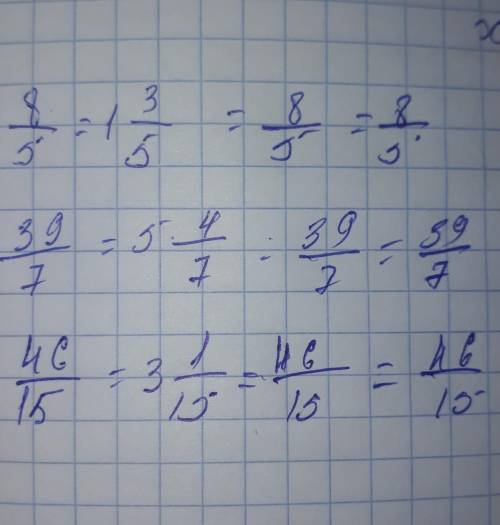 8/5 = 1 3/5 = 8/5 = 8/5
39/7 = 5 4/7 = 39/7 = 39/7
46/15 = 3 1/15 = 46/15 = 46/15